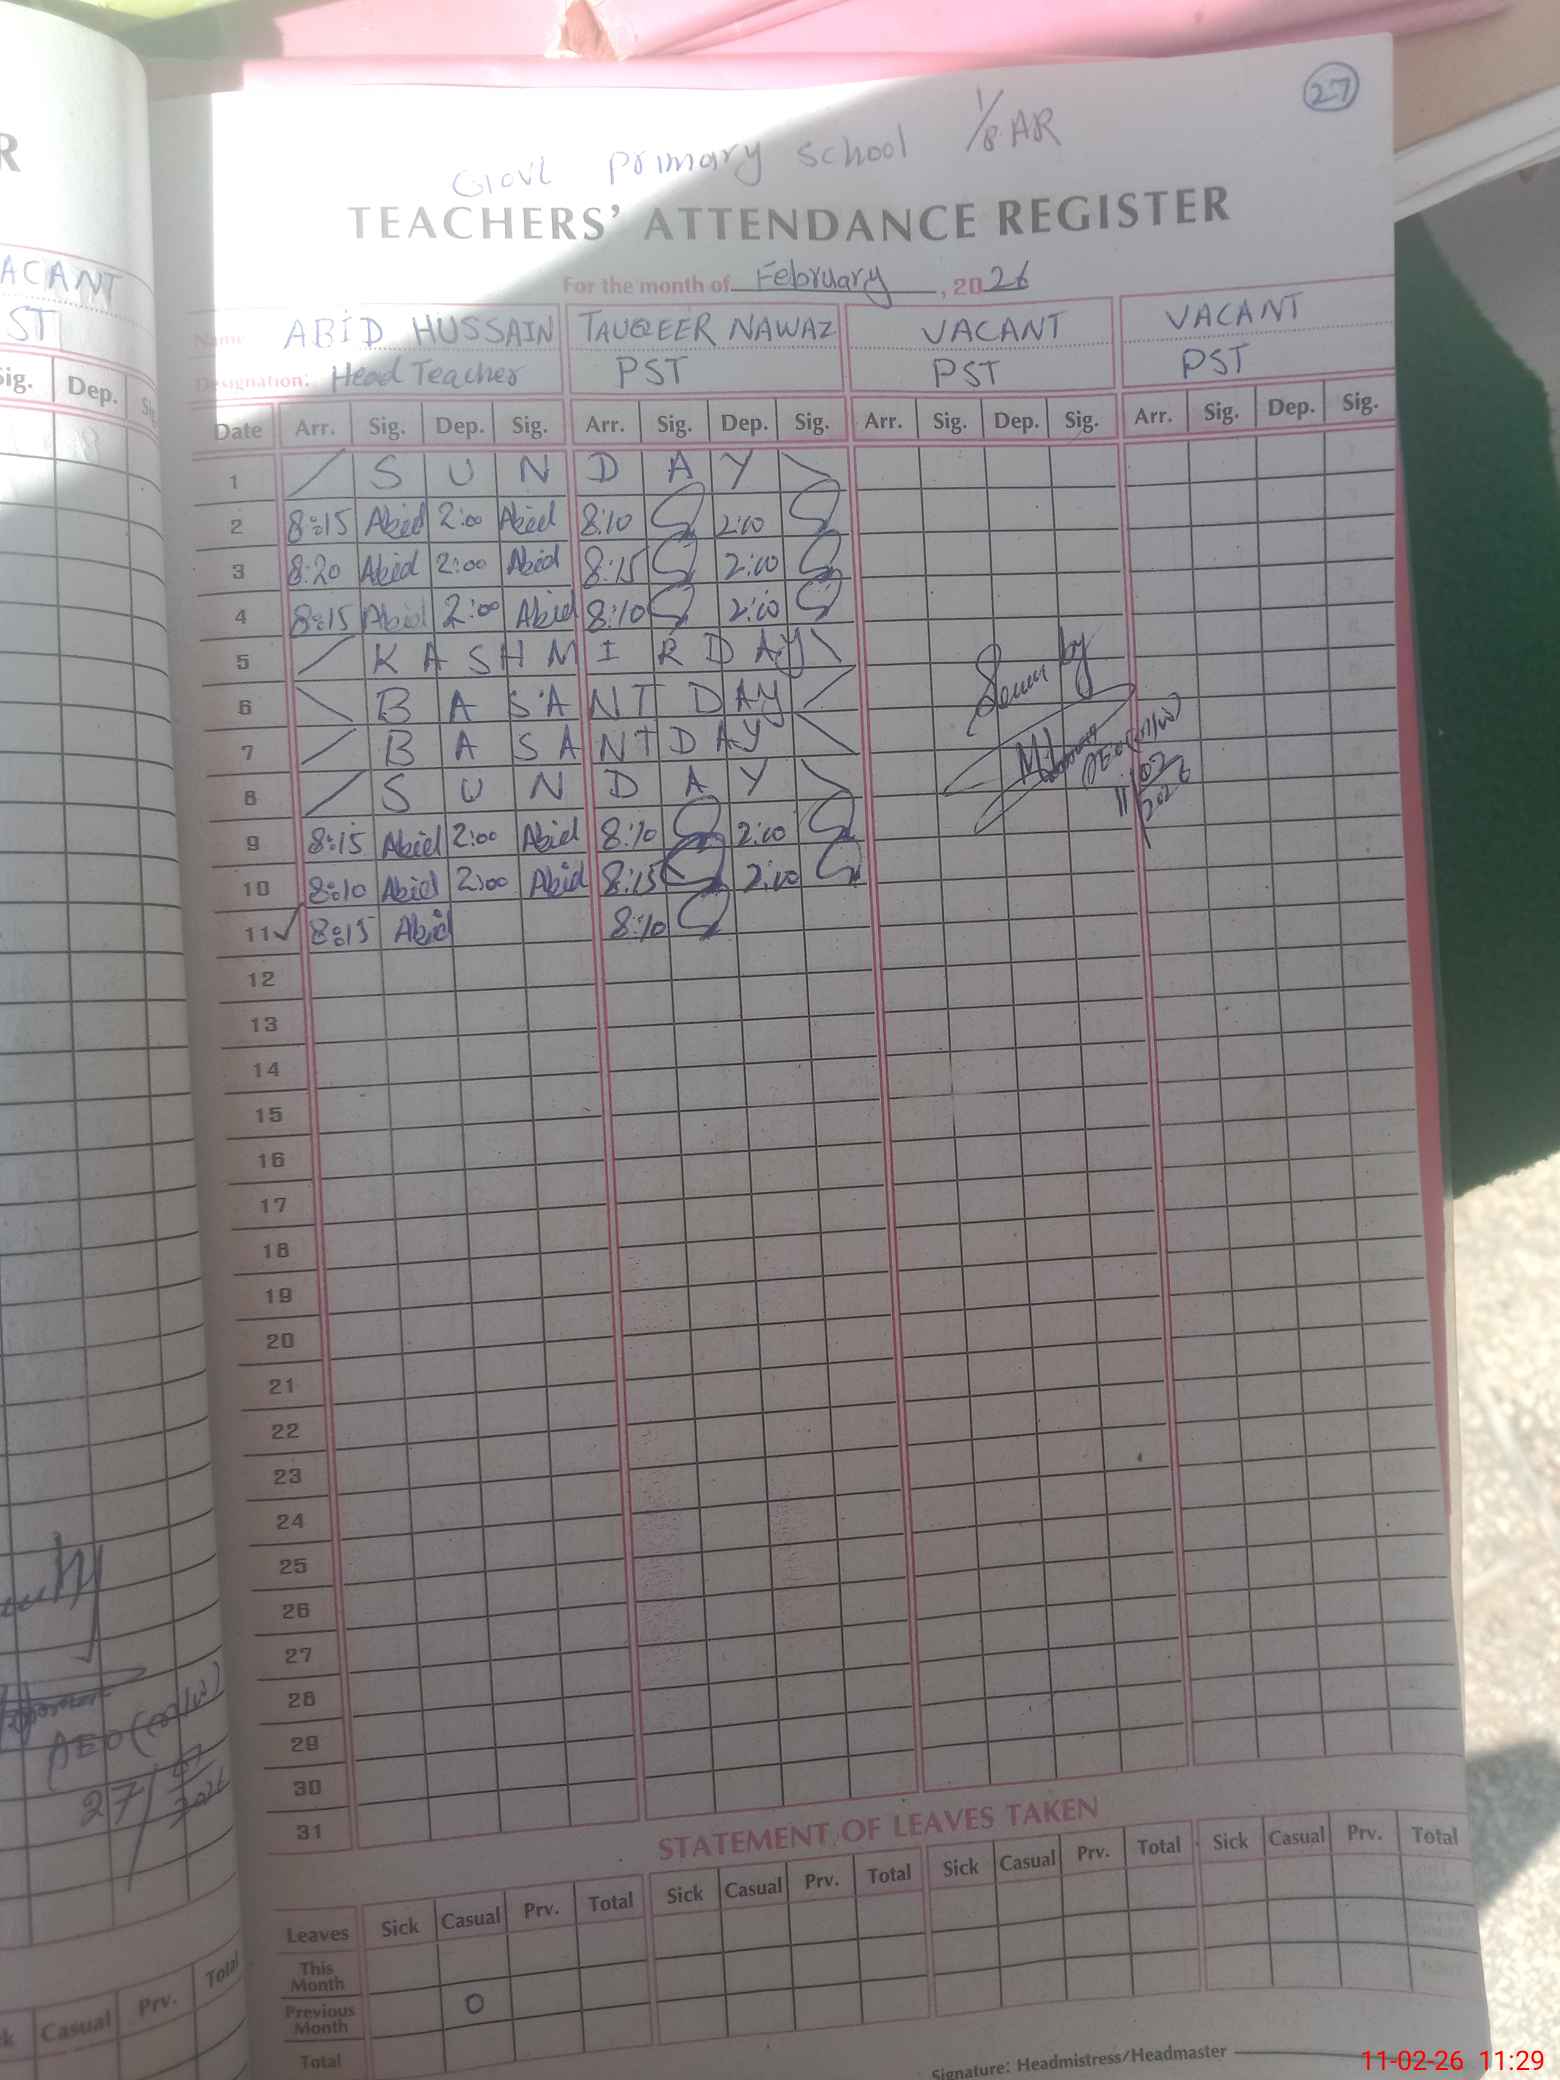 27
Govt Primary School 1/8 AR
TEACHERS' ATTENDANCE REGISTER
For the month of February, 2026
Name ABID HUSSAIN TAUQEER NAWAZ VACANT VACANT
Designation: Head Teacher PST PST PST
Date Arr. Sig. Dep. Sig. Arr. Sig. Dep. Sig. Arr. Sig. Dep. Sig. Arr. Sig. Dep. Sig.
1 SUNDAY
2 8:15 Abid 2:00 Abid 8:10 2:00
3 8:20 Abid 2:00 Abid 8:15 2:00
4 8:15 Abid 2:00 Abid 8:10 2:00
5 KASHMIR DAY
6 BASANT DAY
7 BASANT DAY
8 SUNDAY
9 8:15 Abid 2:00 Abid 8:10 2:00
10 8:10 Abid 2:00 Abid 8:15 2:00
11 8:15 Abid 8:10
12
13
14
15
16
17
18
19
20
21
22
23
24
25
26
27
28
29
30
31
by
11/02/2026
STATEMENT OF LEAVES TAKEN
Leaves Sick Casual Prv. Total Sick Casual Prv. Total Sick Casual Prv. Total Sick Casual Prv. Total
This Month
Previous Month 0
Total
Signature: Headmistress/Headmaster
R
ACANT
ST
Sig. Dep.
AEO
27/
Total
Casual Prv.
11-02-26 11:29